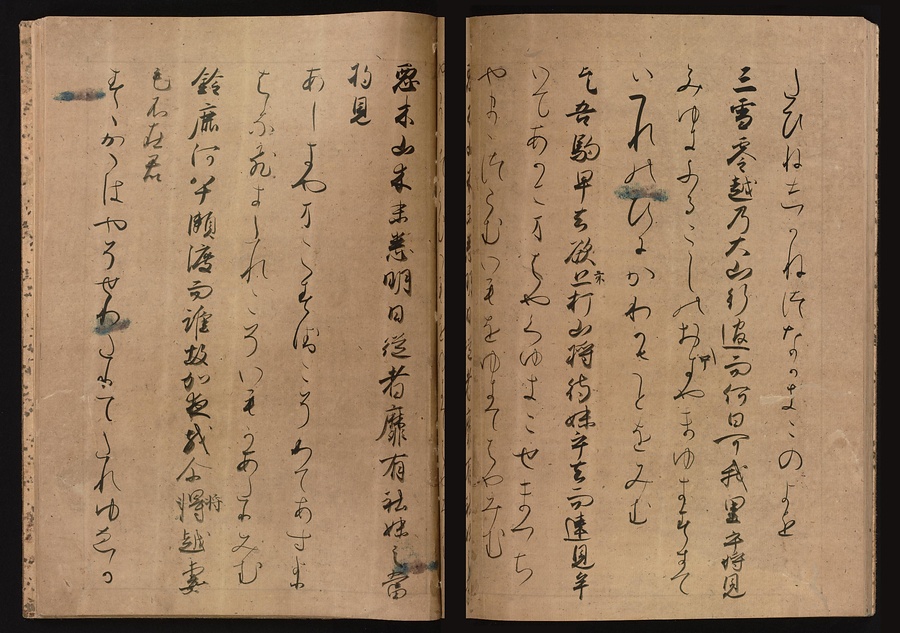 たひねしかねつなかきこのよを
三雪零越乃大山行過而何日可我里乎将見
みゆきふるこしのおほやまゆきすきて
いつれのひにかわかさとをみむ
乞吾駒早去欲亦打山将待妹乎去而速見牟
いてあかこまはやくゆきこせまつち
やままつらむいもをゆきてはやみむ
悪木山木末悉明日従者靡有社妹之當
将見
あしきやまこすゑこそりてあすより
はなひきたれこそいもかあたりみむ
鈴鹿河八十瀬渡而誰故加夜越尓将越妻
毛不在君
すゝかかはやそせわたりてたれゆゑか